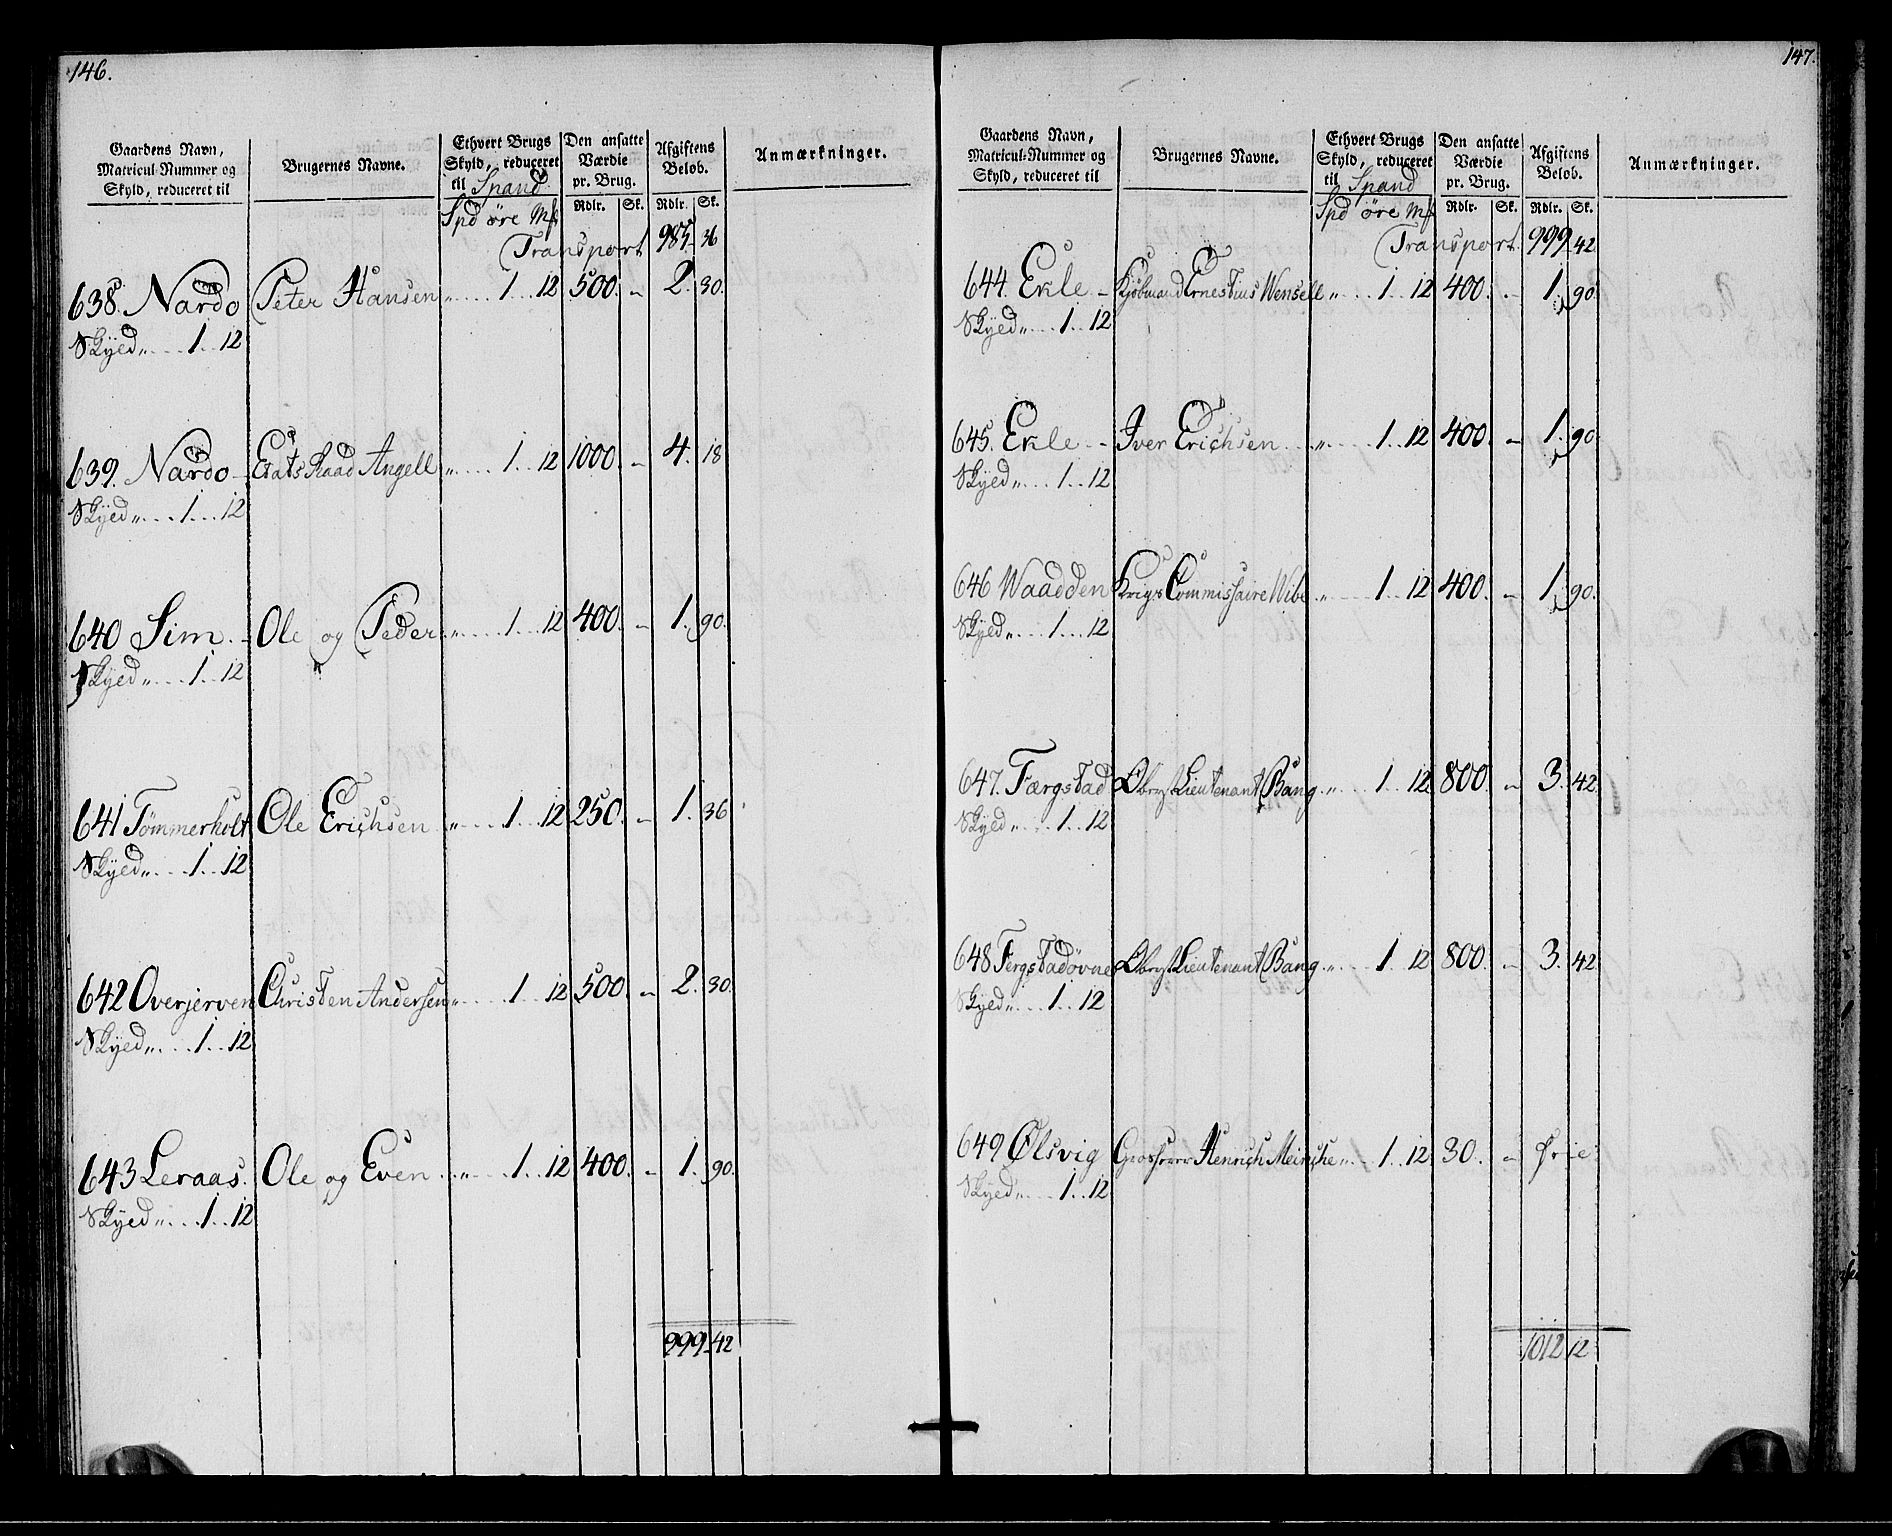 146.
Gaardens Navn, Matricul-Nummer og Skyld, reduceret til
Brugernes Navne.
Ethvert Brugs Skyld, reduceret til Spand
Den ansatte Værdie pr. Brug.
Afgiftens Beløb.
Anmærkninger.
Spd øre Mk Rdlr. Sk. Rdlr. Sk.
Transport 985 36
638. Nardo Peter Hansen „ 1 12 500. „ 2. 30.
Skyed „ 1 12
639. Nardo Etats Raad Angell „ 1 12 1000. „ 4. 18
Skyed „ 1 12
640 Sim Ole og Peder „ 1 12 400. „ 1. 90.
Skyed „ 1 12
641 Tømmerholt Ole Erichsen „ 1 12 250. „ 1. 36
Skyed „ 1 12
642 Overjerven Christen Andersen „ 1 12 500. „ 2. 30.
Skyed „ 1 12
643 Leraas. Ole og Even „ 1 12 400. „ 1. 90.
Skyed „ 1 12
999 42
147.
Gaardens Navn, Matricul-Nummer og Skyld, reduceret til
Brugernes Navne.
Ethvert Brugs Skyld, reduceret til Spand
Den ansatte Værdie pr. Brug.
Afgiftens Beløb.
Anmærkninger.
Spd øre Mk Rdlr. Sk. Rdlr. Sk.
Transport 999 42
644. Ekle Kjøbmand Ernestius Wensell „ 1 12 400. „ 1. 90
Skyed „ 1 12
645. Ekle Iver Erichsen „ 1 12 400. „ 1. 90
Skyed „ 1 12
646 Waadden Krigs Commissaire Wibe „ 1 12 400. „ 1. 90.
Skyed „ 1 12
647. Færgstad Oberst Lieutenant Bang „ 1 12 800. „ 3. 42
Skyed „ 1 12
648 Fergstadøvne Oberst Lieutenant Bang „ 1 12 800. „ 3. 42
Skyed „ 1 12
649 Ølsvig Grosserer Henrich Meincke „ 1 12 30. „ Frie
Skyed „ 1 12
1012 12